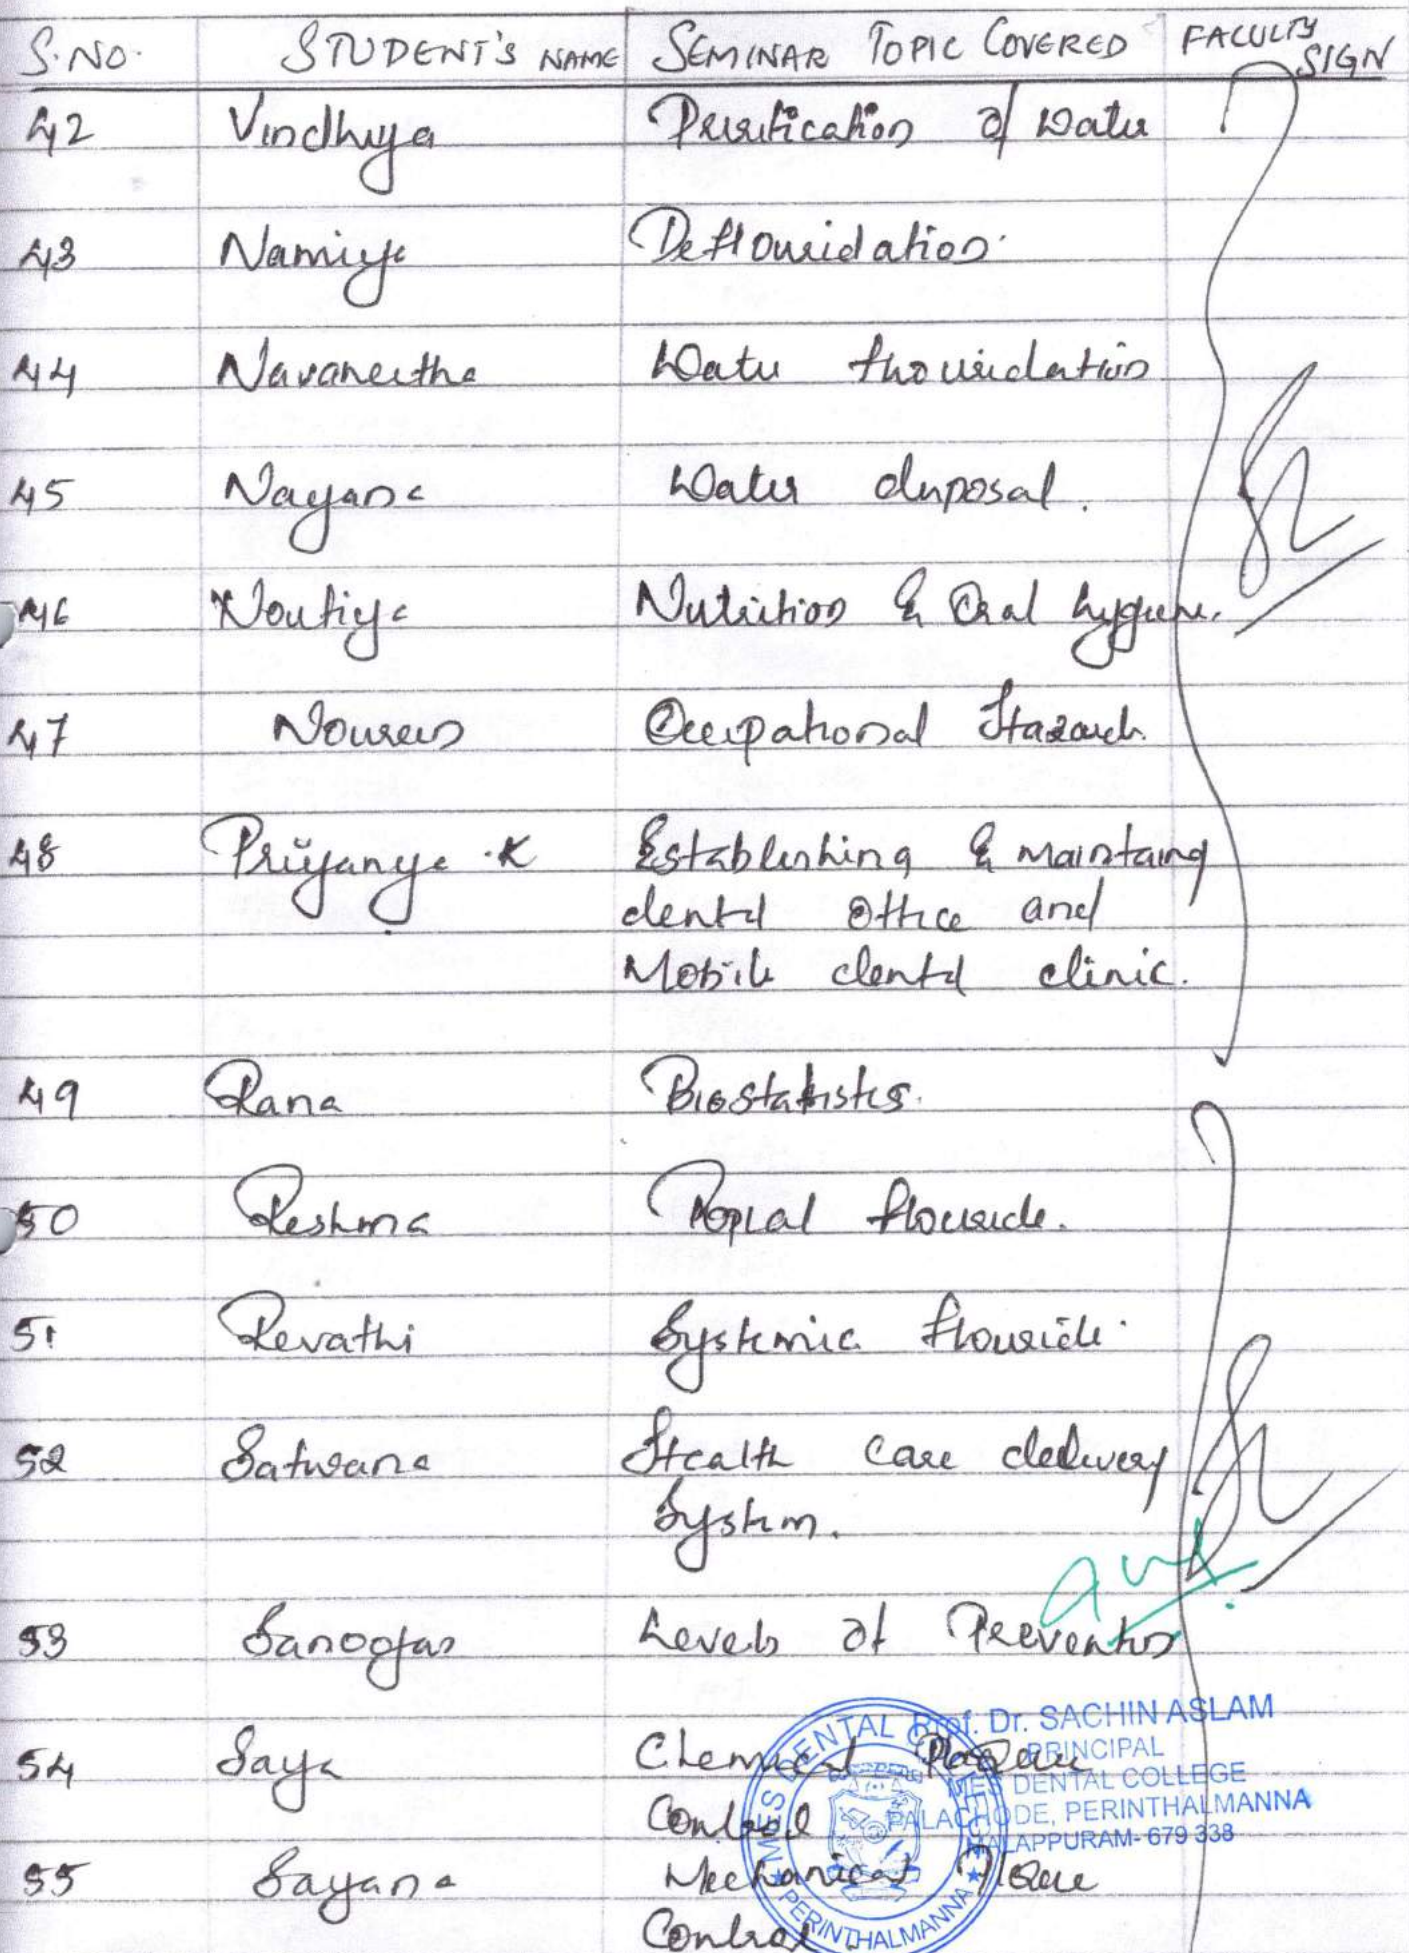 S.NO. STUDENT'S NAME SEMINAR TOPIC COVERED FACULTY SIGN
42 Vindhya Purification of Water
43 Namiya Deflouridation.
44 Navaneetha Water flouridation
45 Nayana Water disposal.
46 Noufiya Nutrition & Oral hygiene.
47 Nourein Occupational Hazards
48 Priyanga .K Establishing & maintaing
dental office and
Mobile dental clinic.
49 Rana Biostatistics.
50 Reshma Topical flouride.
51 Revathi Systemic flouride.
52 Safwana Health Care delivery
System.
53 Levels of Prevention
54 Saya Chemical Plaque
Control
55 Sayana Mechanical Plaque
Control
Prof. Dr. SACHIN ASLAM
PRINCIPAL
MES DENTAL COLLEGE
PALACHODE, PERINTHALMANNA
MALAPPURAM- 679 338
MES DENTAL COLLEGE
PERINTHALMANNA